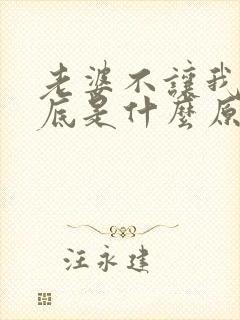 老婆不讓我
底是什麼原
汪永建